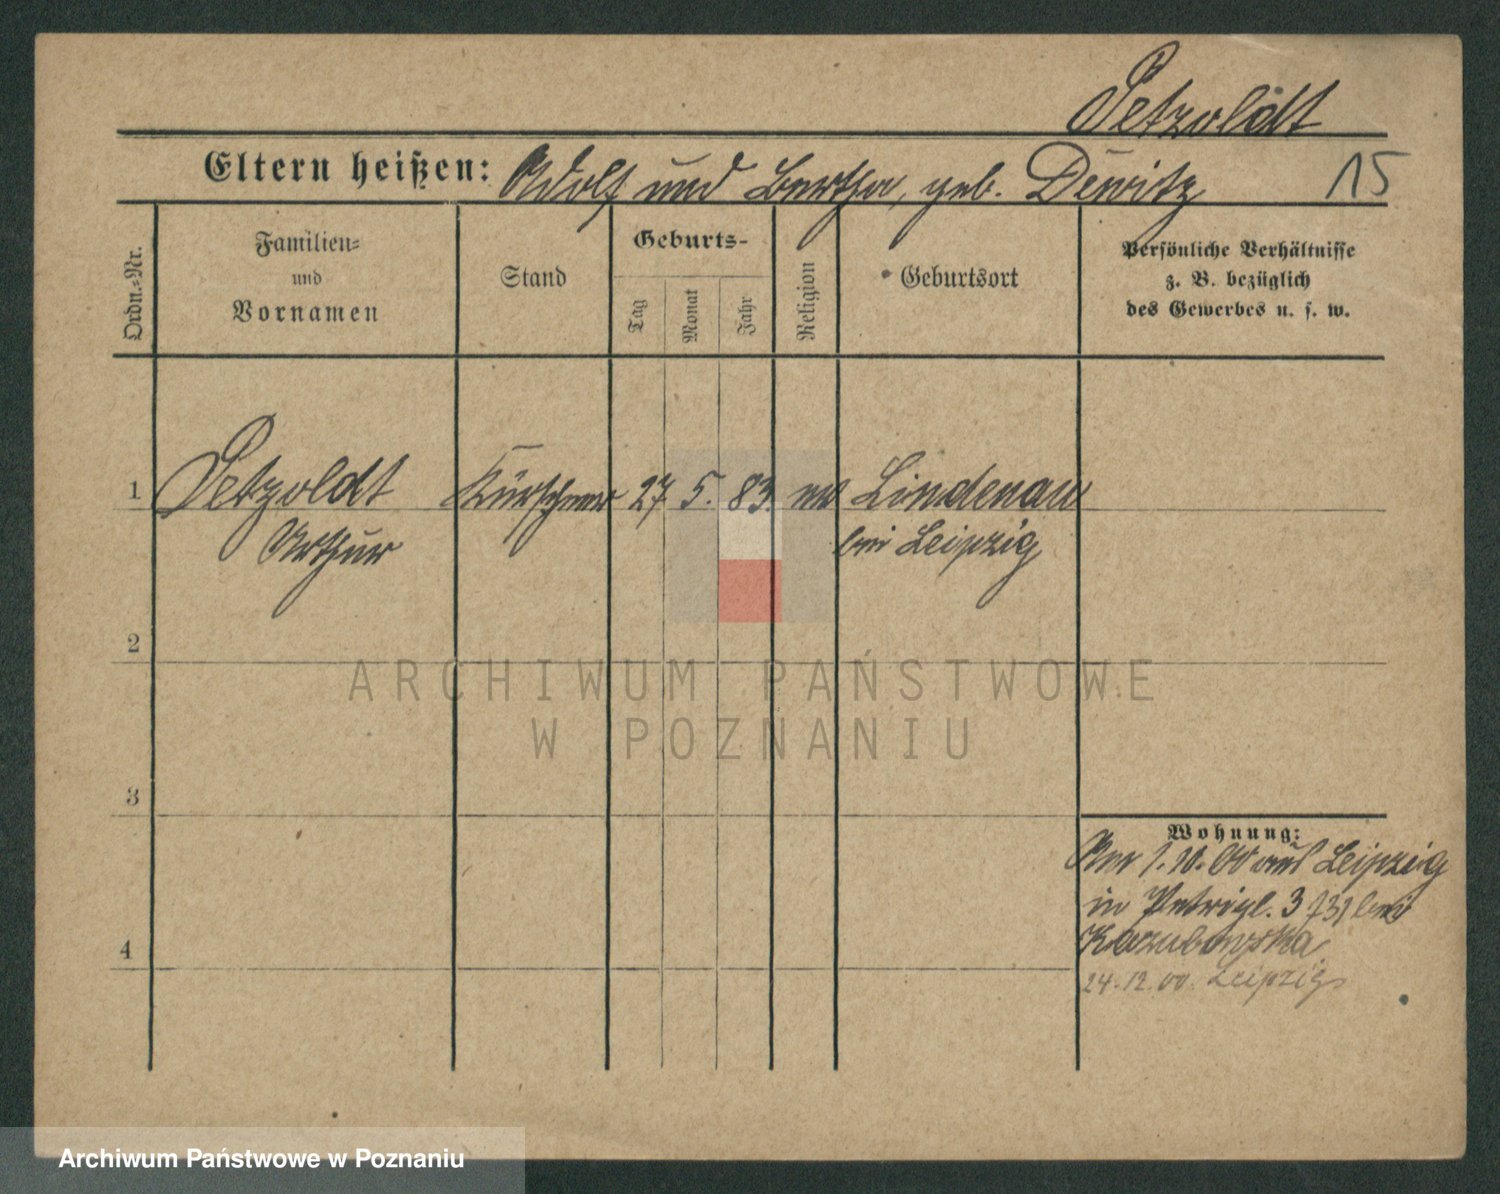 Petzoldt
Eltern heißen: Adolf und Bertha, geb. Dewitz 15
Ordn.-Nr.
Familien-
und
Vornamen
Stand
Geburts-
Tag
Monat
Jahr
Religion
Geburtsort
Persönliche Verhältnisse
z. B. bezüglich
des Gewerbes u. s. w.
1 Petzoldt Kürschner 27 5. 83. ev Lindenau
Arthur bei Leipzig
2
ARCHIWUM PAŃSTWOWE
W POZNANIU
3
Wohnung:
1.10.00 aus Leipzig
in Petripl. 3 bei
4
24.12.00. Leipzig
Archiwum Państwowe w Poznaniu